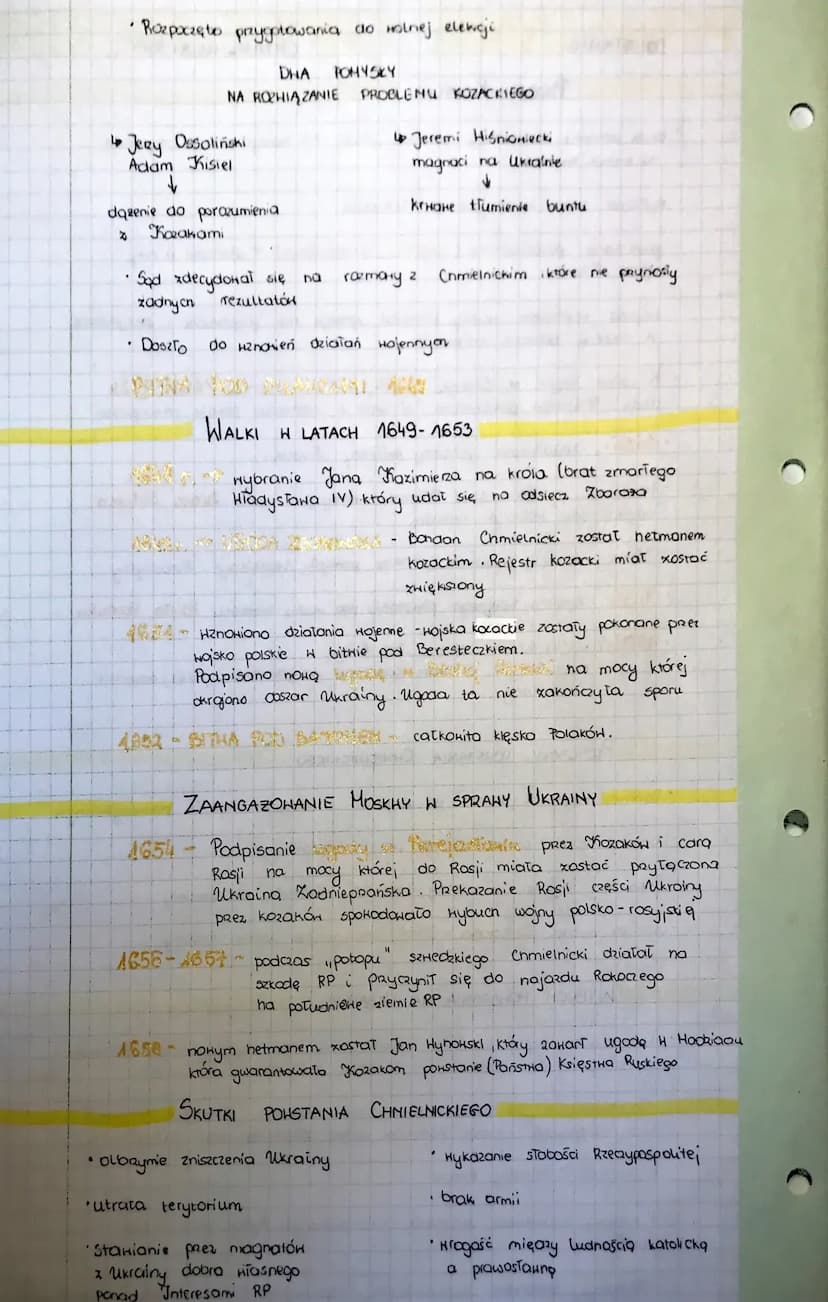 · Rozpoczęto przygotowania do wolnej elekcji
DWA POMYSŁY
NA ROZWIĄZANIE PROBLEMU KOZACKIEGO
↳ Jerzy Ossoliński
Adam Kisiel
↓
dążenie do porozumienia
z Kozakami
↳ Jeremi Wiśniowiecki
magnaci na Ukrainie
↓
krwawe tłumienie buntu
· Sąd zdecydował się na rozmowy z Chmielnickim, które nie przyniosły
żadnych rezultatów
· Doszło do wznowień działań wojennych
BITWA POD PIŁAWCAMI 1648
WALKI W LATACH 1649-1653
1649 r. → wybranie Jana Kazimierza na króla (brat zmarłego
Władysława IV) który udał się na odsiecz Zbaraża
- Bohdan Chmielnicki został hetmanem
kozackim. Rejestr kozacki miał zostać
zwiększony
1651 - wznowiono działania wojenne - wojska kozackie zostały pokonane przez
wojsko polskie w bitwie pod Beresteczkiem.
Podpisano nową ugodę w Białej Cerkwi na mocy której
okrojono obszar Ukrainy. Ugoda ta nie zakończyła sporu
1652 - BITWA POD BATOHEM - całkowita klęska Polaków.
ZAANGAŻOWANIE MOSKWY W SPRAWY UKRAINY
1654 - Podpisanie ugody w Perejasławiu przez Kozaków i cara
Rosji na mocy której do Rosji miała zostać przyłączona
Ukraina Zadnieprzańska. Przekazanie Rosji części Ukrainy
przez kozaków spowodowało wybuch wojny polsko-rosyjskiej
1656-1657 - podczas „potopu" szwedzkiego Chmielnicki działał na
szkodę RP i przyczynił się do najazdu Rakoczego
na południowe ziemie RP
1658 - nowym hetmanem został Jan Wyhowski, który zawarł ugodę w Hadziaczu
która gwarantowała Kozakom powstanie (Państwa) Księstwa Ruskiego
SKUTKI POWSTANIA CHMIELNICKIEGO
· olbrzymie zniszczenia Ukrainy
· utrata terytorium
· Stawianie przez magnatów
z Ukrainy dobra własnego
ponad Interesami RP
· wykazanie słabości Rzeczypospolitej
· brak armii
· wrogość między ludnością katolicką
a prawosławną